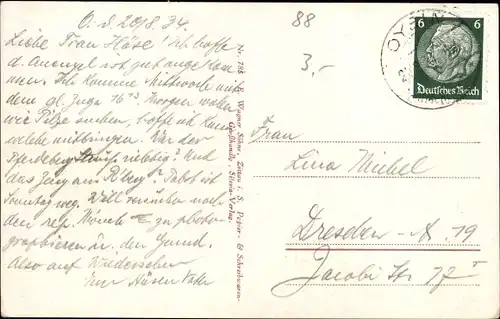 O. d. 20/8.34
Liebe Frau Häse! Ich hoffe
d. ist gut ange kom
men. Ich komme Mittwoch mit
dem gl. Zuge 16 Morgen wollen
wir Pilze suchen, hoffe ich kann
welche mitbringen. War der
richtig? Und
das Zeug am ? Pabst ist
Sonntag weg. Will versuchen noch
den Mönch zu photo-
graphieren u. den Hund.
Also auf Wiedersehen
Ihr
88
3,-
Nr. 788 E. Wagner Söhne, Zittau i. S. Papier- & Schreibwaren-
Großhandlg. Silesia-Verlag.
OYBIN
6 6
Deutsches Reich
Frau
Lina Michel
Dresden-A. 19
Jacobi Str 17 I